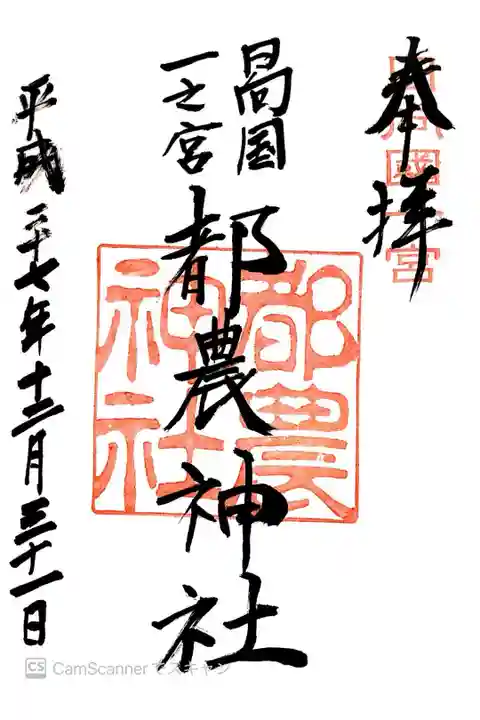 奉拝
日向國一宮
日向国
一之宮
都農神社
都農
神社
平成二十七年十二月三十一日
CS CamScanner でスキャン